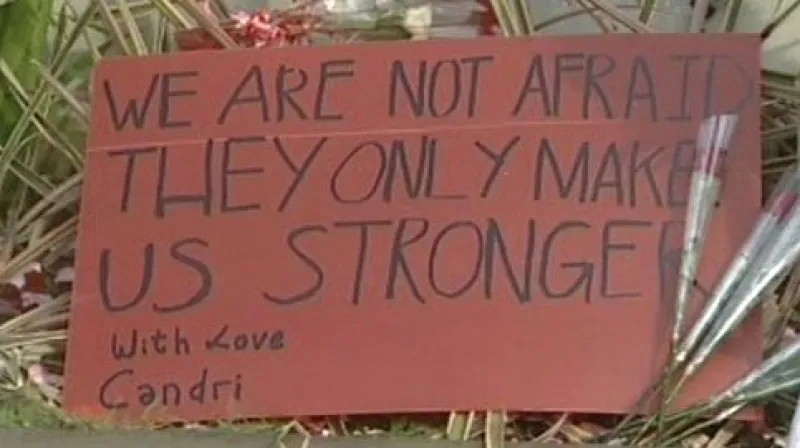 WE ARE NOT AFRAID
THEY ONLY MAKE
US STRONGER
With Love
Candri